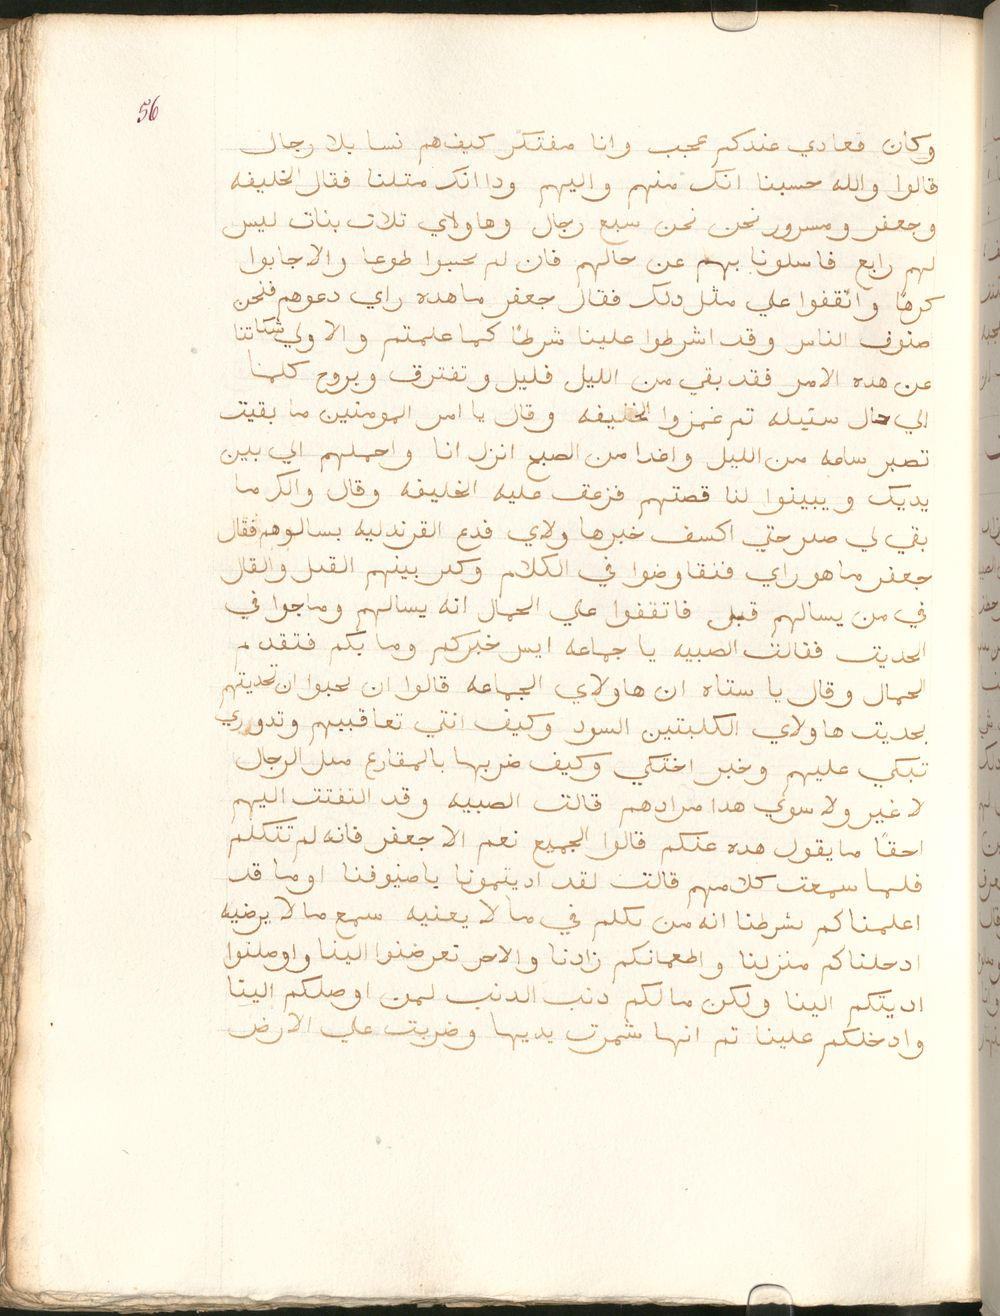 56
وكان قعادي عندكم عجب وانا مفتكر كيف هم نسا بلا رجال
قالوا والله حسبنا انك منهم واليهم ودا انك متلنا فقال الخليفه
وجعفر ومسرور نحن نحن سبع رجال وهاولاي تلات بنات ليس
لهم رابع فاسلونا بهم عن حالهم فان لم يحببوا طوعا والا جابوا
كرهًا واتقفوا علي مثل دلك فقال جعفر ما هده راي دعوهم فنحن
ضنوف الناس وقد اشرطوا علينا شرطًا كما علمتم والاولي سكاتنا
عن هده الامر فقد بقي من الليل قليل وتفترق ويروح كلمنا
الي حال سبيله تم غمزوا الخليفه وقال يا امر المومنين ما بقيت
تصبر ساعه من الليل واغدا من الصبح انزل انا واحملهم الي بين
يديك ويبينوا لنا قصتهم فزعق عليه الخليفه وقال والكر ما
بقي لي صبر حتي اكسف خبرها ولاي فدع القرندليه يسالوهم فقال
جعفر ما هو راي فتقاوضوا في الكلام وكتر بينهم القيل والقال
في من يسالهم قبل فاتقفوا علي الحمال انه يسالهم وماجوا في
الحديت فقالت الصبيه يا جماعه ايس خبركم وما بكم فتقدم
الحمال وقال يا ستاه ان هاولاي الجماعه قالوا ان يحبوا ان تحديتهم
بحديت هاولاي الكلبتين السود وكيف انتي تعاقبيهم وتدوري
تبكي عليهم وخبر اختكي وكيف ضربها بالمقارع متل الرجال
لا غير ولا سوي هدا مرادهم قالت الصبيه وقد التفتت اليهم
احقًا ما يقول هده عنكم قالوا الجميع نعم الا جعفر فانه لم تتكلم
فلما سمعت كلامهم قالت لقد اديتمونا ياضيوفنا اوما قد
اعلمناكم بشرطنا انه من تكلم في ما لا يعنيه سمع ما لا يرضيه
ادخلناكم منزلنا واطعمناكم زادنا والاخر تعرضنوا الينا واوصلنوا
اديتكم الينا ولكن ما لكم دنب الدنب لمن اوصلكم الينا
وادخلكم علينا تم انها شمرت يديها وضربت علي الارض